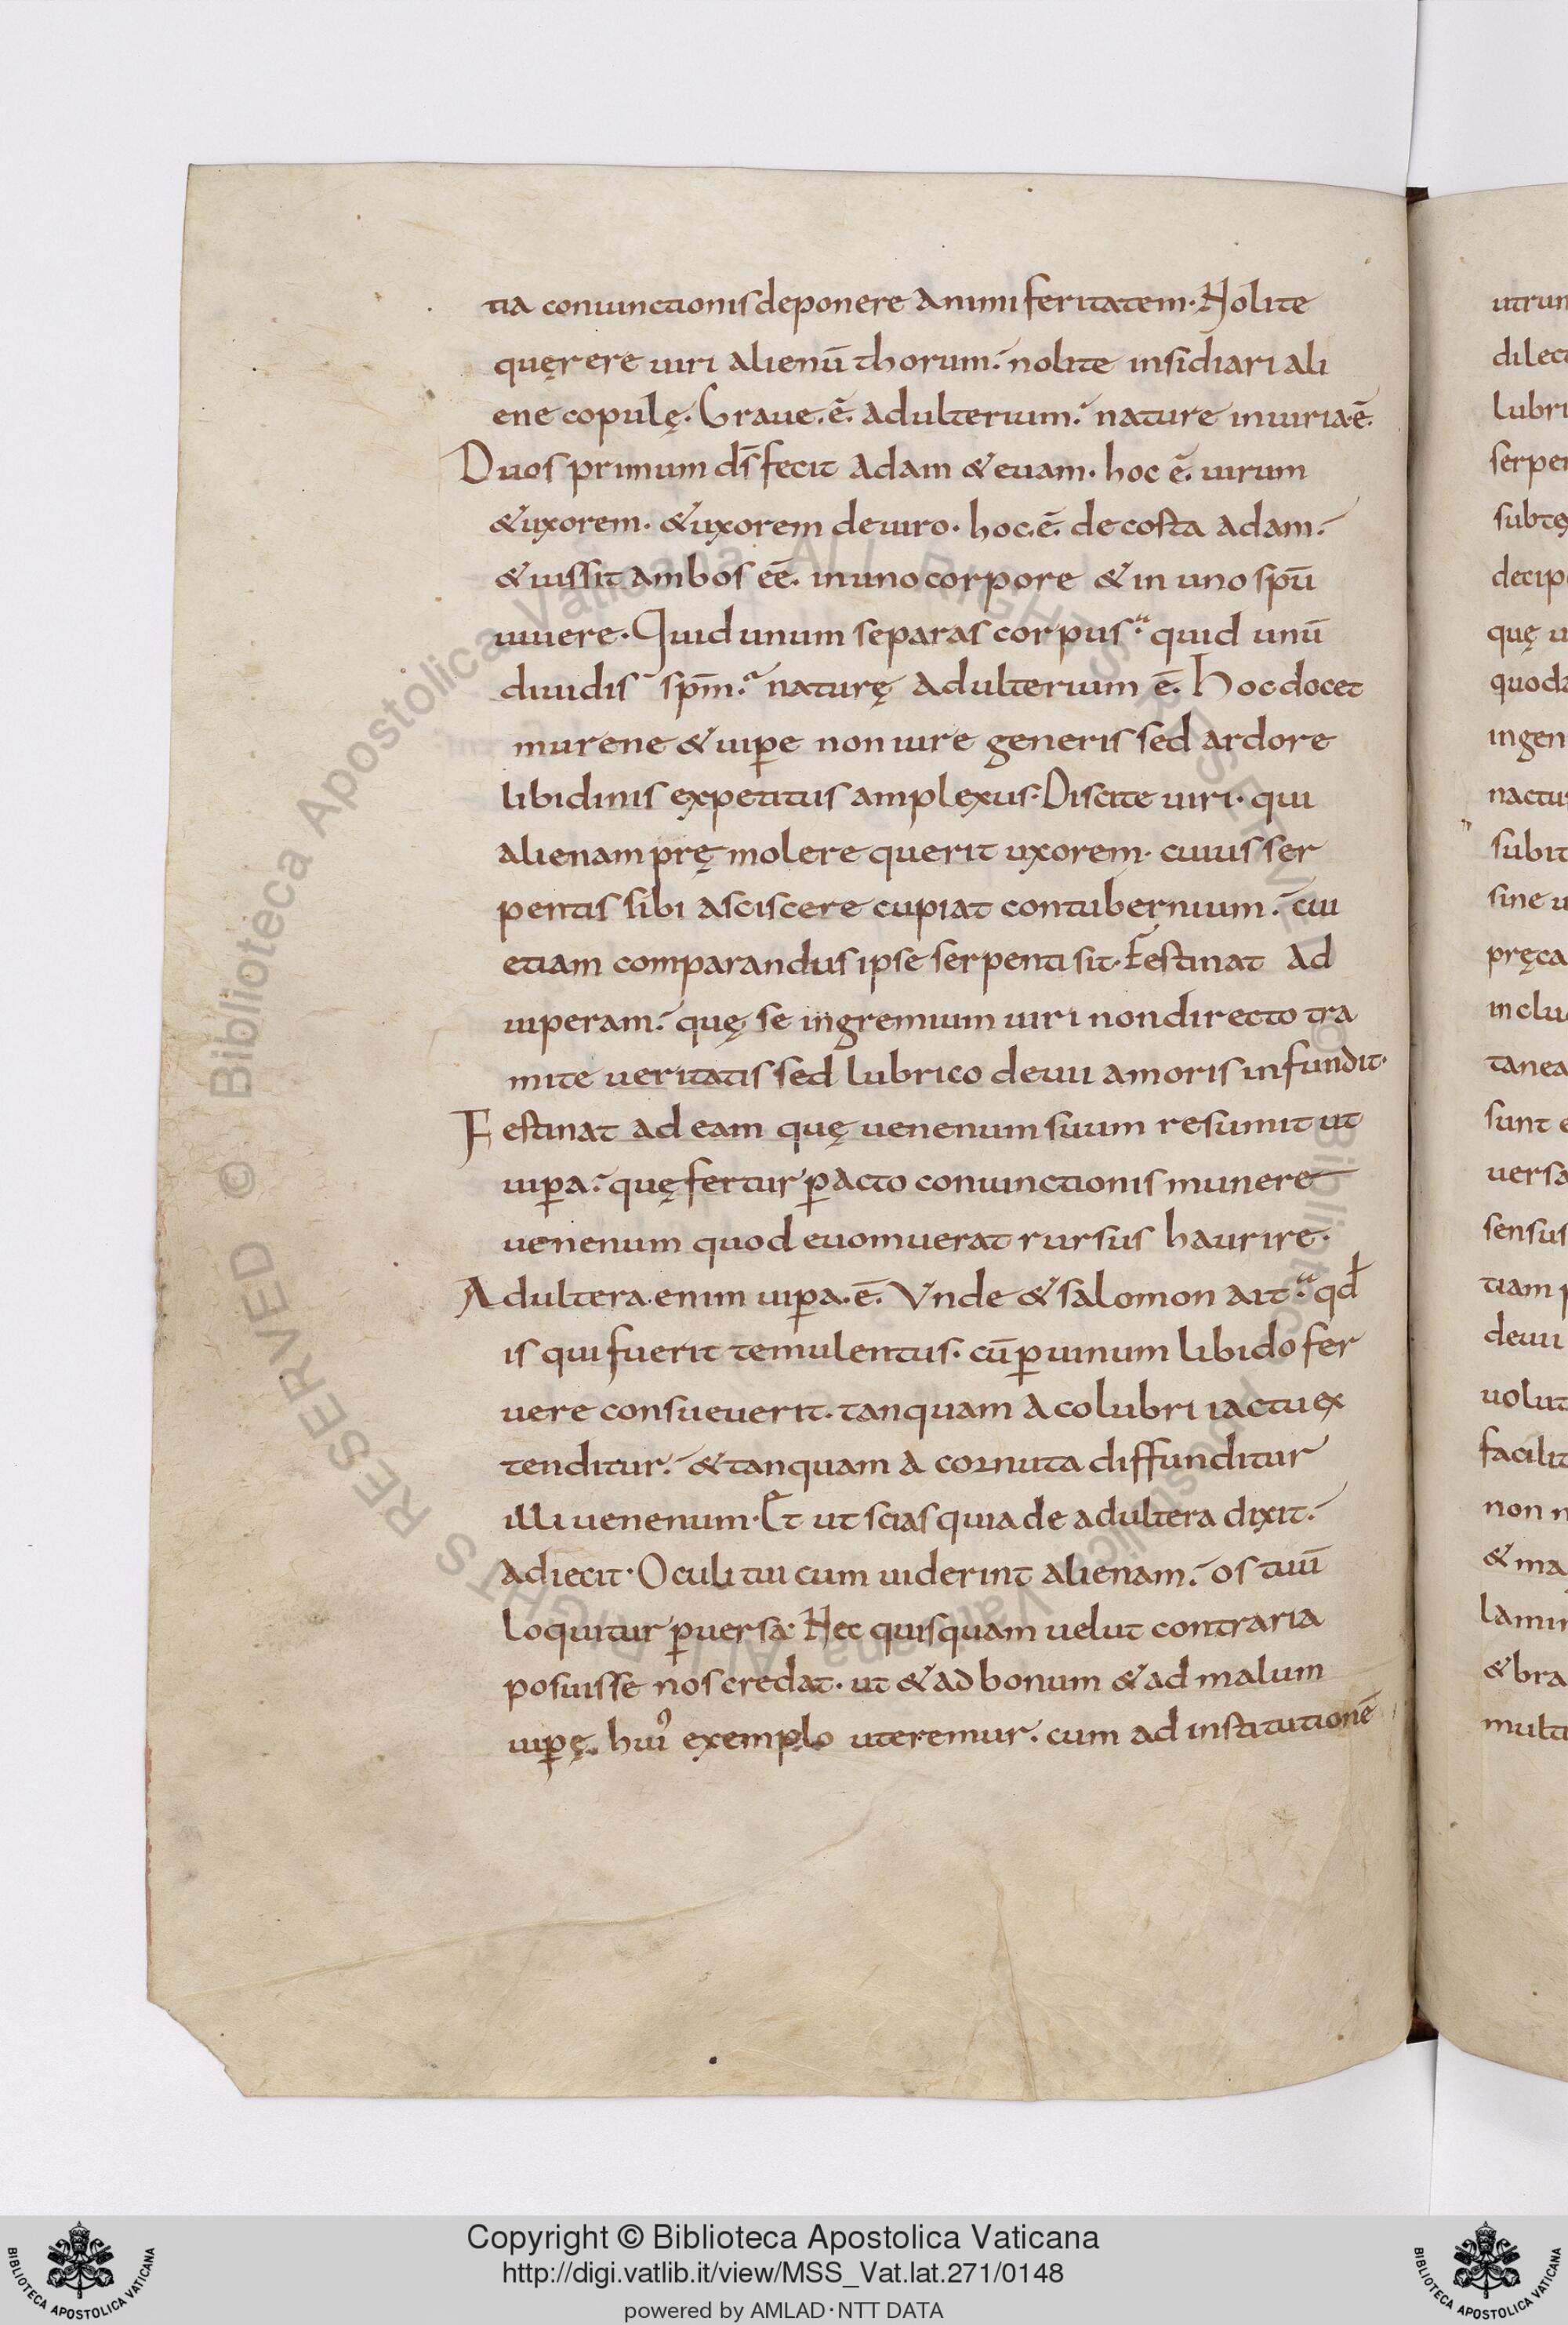 tia coniunctionis deponere animi feritatem. Nolite
quęrere uiri alienū thorum. nolite insidiari ali
ene copulę. Graue. ē. adulterium. nature iniuria ē.
Duos primum dс̄ fecit adam & euam. hoc ē. uirum
& uxorem. & uxorem de uiro. hoc. ē. de costa adam.
& iussit ambos eē. in uno corpore & in uno spū
uiuere. Quid unum separas corpus. quid unū
diuidis spm̄. naturę adulterium ē. Hoc docet
murene & uiꝑe non iure generis sed ardore
libidinis expetitus amplexus. Discite uiri. qui
alienam pręmolere querit uxorem. cuius ser
pentis sibi asciscere cupiat contubernium. cui
etiam comparandus ipse serpenti sit. Festinat ad
uiperam. quę se in gremium uiri non directo tra
mite ueritatis sed lubrico deuii amoris infundit.
Festinat ad eam quę uenenum suum resumit ut
uiꝑa. quę fertur ꝑacto coniunctionis munere
uenenum quod euomuerat rursus haurire.
Adultera. enim uiꝑa. ē. Vnde & salomon ait. qđ
is qui fuerit temulentus. cū ꝑ uinum libido fer
uere consueuerit. tanquam a colubri iactu ex
tenditur. & tanquam a cornuta diffunditur
illi uenenum. Et ut scias quia de adultera dixit.
adiecit. Oculi tui cum uiderint alienam. os tuū
loquitur ꝑuersa. Nec quisquam uelut contraria
posuisse nos credat. ut & ad bonum & ad malum
uiꝑę. hui᾿ exemplo uteremur. cum ad institutionē
utrum
lubri
subtę
decip
quę u
quoda
ingen
nactu
subit
sine u
pręca
inclu
tanea
sunt e
uersa
sensus
tiam
deuii
uolut
facilit
non n
& ma
lamin
& bra
multi
© Biblioteca Apostolica Vaticana ALL RIGHTS RESERVED
Copyright © Biblioteca Apostolica Vaticana
http://digi.vatlib.it/view/MSS_Vat.lat.271/0148
powered by AMLAD·NTT DATA
BIBLIOTECA APOSTOLICA VATICANA
BIBLIOTECA APOSTOLICA VATICANA